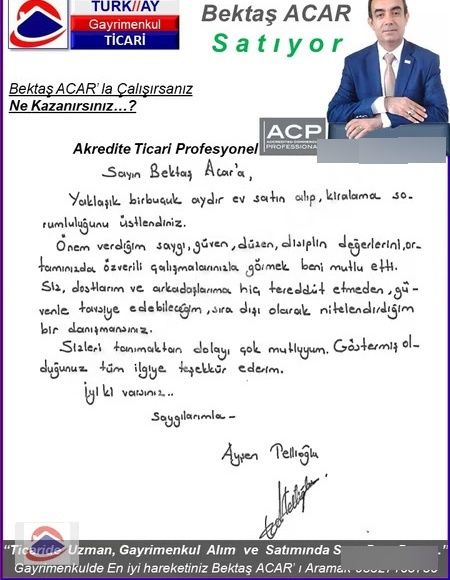 TÜRK//AY
Gayrimenkul
TİCARİ
Bektaş ACAR
Satıyor
Bektaş ACAR' la Çalışırsanız
Ne Kazanırsınız...?
ACP
PROFESSIONAL
Akredite Ticari Profesyonel
Sayın Bektaş Acar'a,
Yaklaşık birbuçuk aydır ev satın alıp, kiralama so-
rumluluğunu üstlendiniz.
Önem verdiğim saygı, güven, düzen, disiplin değerlerini, or-
tamınızda özverili çalışmalarınızla görmek beni mutlu etti.
Siz, dostlarım ve arkadaşlarıma hiç tereddüt etmeden, gü-
venle tavsiye edebileceğim, sıra dışı olarak nitelendirdiğim
bir danışmansınız.
Sizleri tanımaktan dolayı çok mutluyum. Göstermiş ol-
duğunuz tüm ilgiye teşekkür ederim.
İyi ki varsınız..
Saygılarımla-
Ayşen Pellioğlu
"Ticaride Uzman, Gayrimenkul Alım ve Satımında
Gayrimenkulde En iyi hareketiniz Bektaş ACAR' ı Aramak